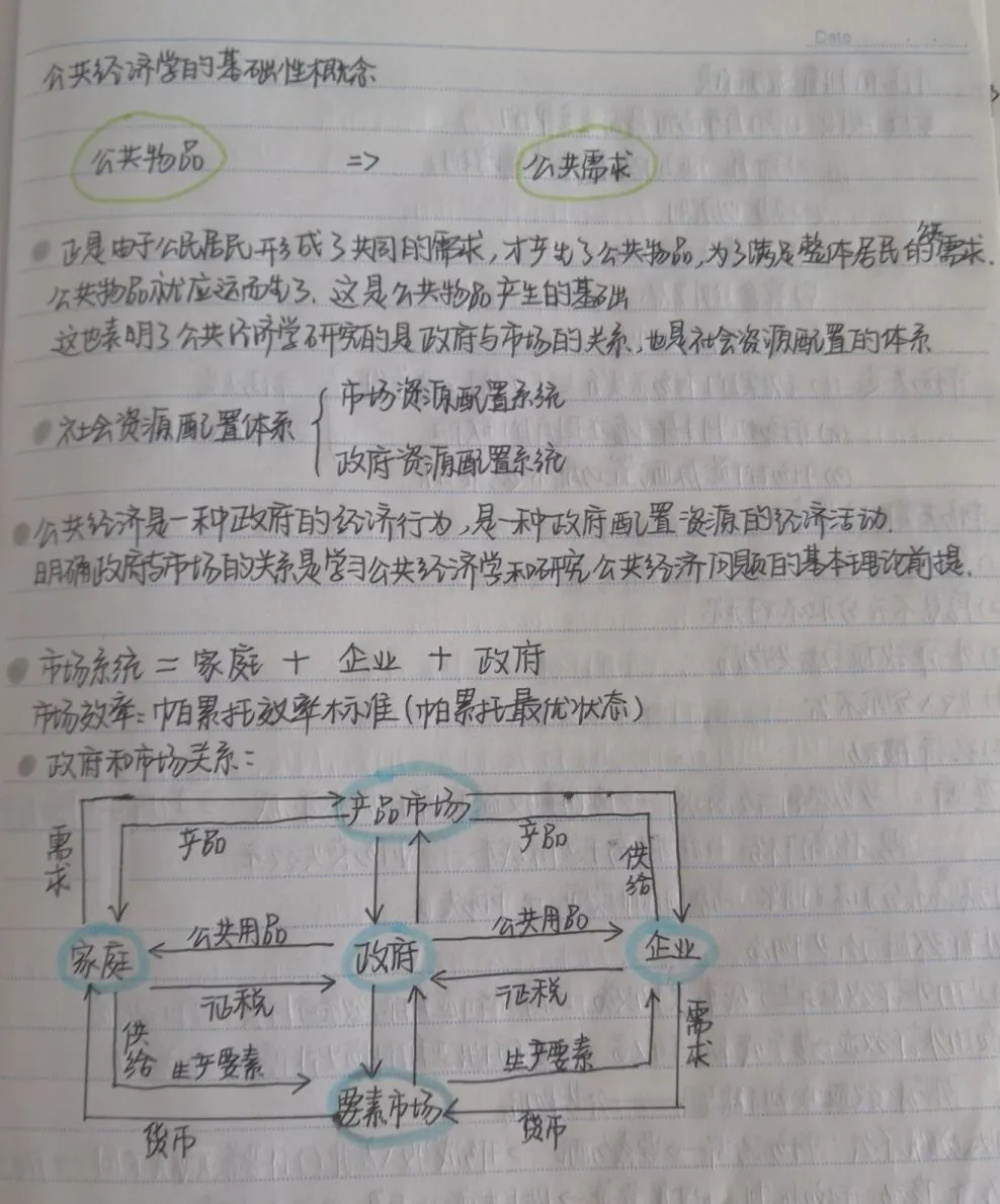 Date
公共经济学的基础性概念
公共物品 => 公共需求
正是由于公民居民形成了共同的需求,才产生了公共物品,为了满足整体居民的需求.
公共物品就应运而生了.这是公共物品产生的基础
这也表明了公共经济学研究的是政府与市场的关系,也是社会资源配置的体系
社会资源配置体系 { 市场资源配置系统
政府资源配置系统
公共经济是一种政府的经济行为,是一种政府配置资源的经济活动.
明确政府与市场的关系是学习公共经济学和研究公共经济问题的基本理论前提.
市场系统 = 家庭 + 企业 + 政府
市场效率:帕累托效率标准(帕累托最优状态)
政府和市场关系:
产品市场
需求 产品 产品 供给
公共用品 公共用品
家庭 政府 企业
证税 证税
供给 生产要素 生产要素 需求
要素市场
货币 货币